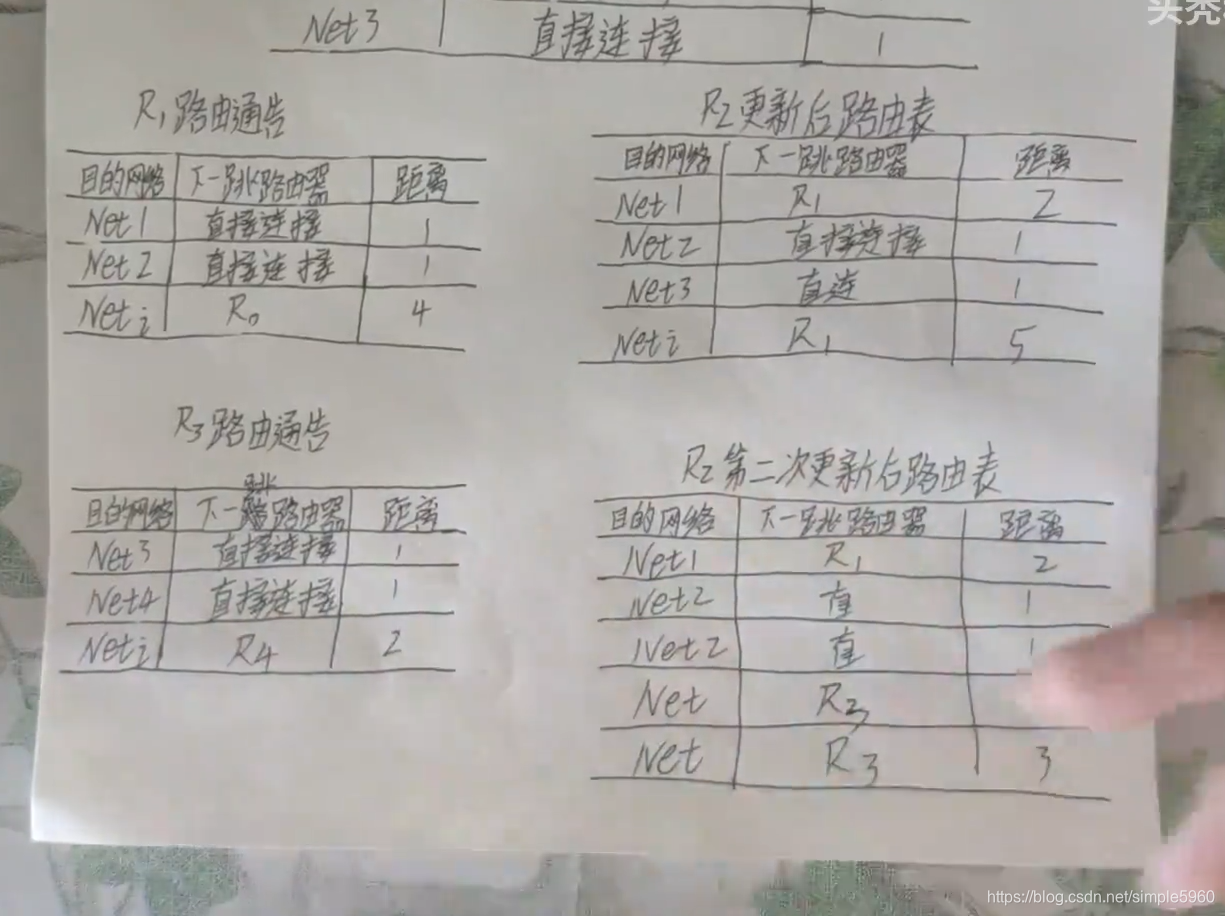 头秃
Net3 直接连接 1
R1路由通告
目的网络 下一跳路由器 距离
Net1 直接连接 1
Net2 直接连接 1
Neti R0 4
R2更新后路由表
目的网络 下一跳路由器 距离
Net1 R1 2
Net2 直接连接 1
Net3 直连 1
Neti R1 5
R3路由通告
跳
目的网络 下一路由器 距离
Net3 直接连接 1
Net4 直接连接 1
Neti R4 2
R2第二次更新后路由表
目的网络 下一跳路由器 距离
Net1 R1 2
Net2 直 1
Net2 直 1
Net R3
Net R3 3
https://blog.csdn.net/simple5960